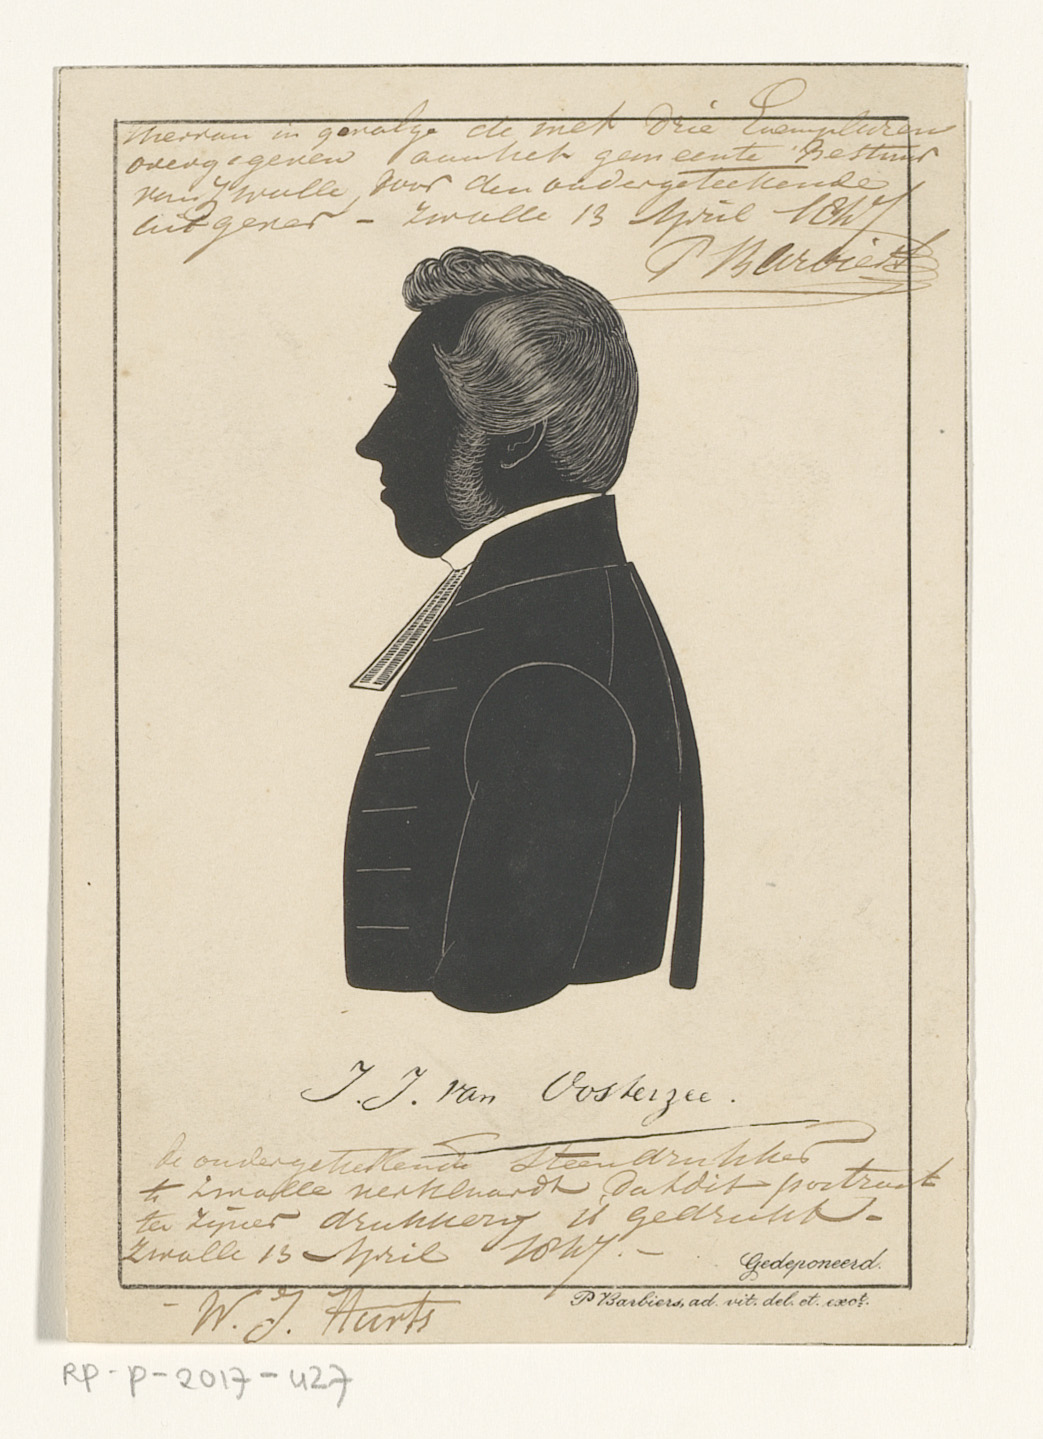 Hiervan in gevolge de wet drie Exemplaren
overgegeven aan het gemeente Bestuur
van Zwolle, door den ondergeteekende
uitgever – Zwolle 13 April 1847
P Barbiers
J. J. van Oosterzee.
de ondergeteekende steendrukker
te Zwolle verklaardt dat dit portrait
ter zijner drukkerij is gedrukt –
Zwolle 13 April 1847. –
Gedeponeerd.
P Barbiers, ad. vit. del. et. exct.
– W. J.
RP-P-2017-427